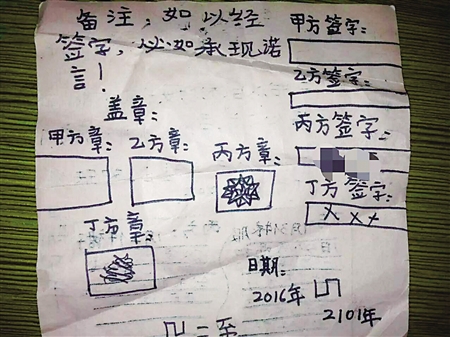 备注：如以经
签字，必如承现诺
言！
甲方签字：
乙方签字：
丙方签字：
丁方签字：
×××
盖章：
甲方章：
乙方章：
丙方章：
丁方章：
日期：
2016年
2101年
二至